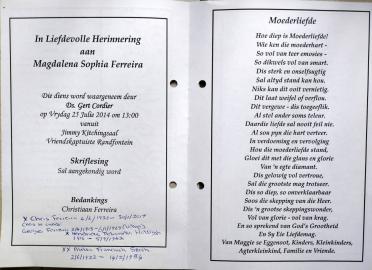 In Liefdevolle Herinnering
aan
Magdalena Sophia Ferreira
Die diens word waargeneem deur
Ds. Gert Cordier
op Vrydag 25 Julie 2014 om 13:00
vanuit
Jimmy Kitchingsaal
Vriendskaptuiste Randfontein
Skriflesing
Sal aangekondig word
Bedankings
Christiaan Ferreira
x Chris Ferreira
George Ferreira
Moederliefde
Hoe diep is Moederliefde!
Wie ken die moederhart -
So vol van teer emosies -
So dikwels vol van smart.
Dis sterk en onselfsugtig
Sal altyd stand kan hou.
Niks kan dit ooit vernietig.
Dit laat weifel of verflou.
Dit vergewe - dis toegeeflik.
Al stel ander soms teleur.
Daardie liefde sal nooit feil nie.
Al sou pyn die hart verteer.
In verdoeming en vervolging
Hou die moederliefde stand,
Gloei dit met die glans en glorie
Van 'n egte diamant.
Dis gelowig vol vertroue,
Sal die grootste mag trotseer.
Dis so diep, so onverklaarbaar
Soos die skepping van die Heer.
Dis 'n grootse skeppingswonder,
Vol van glorie - vol van krag.
En so sprekend van God's Grootheid
En Sy Eie Liefdesmag.
Van Maggie se Eggenoot, Kinders, Kleinkinders,
Agterkleinkind, Familie en Vriende.